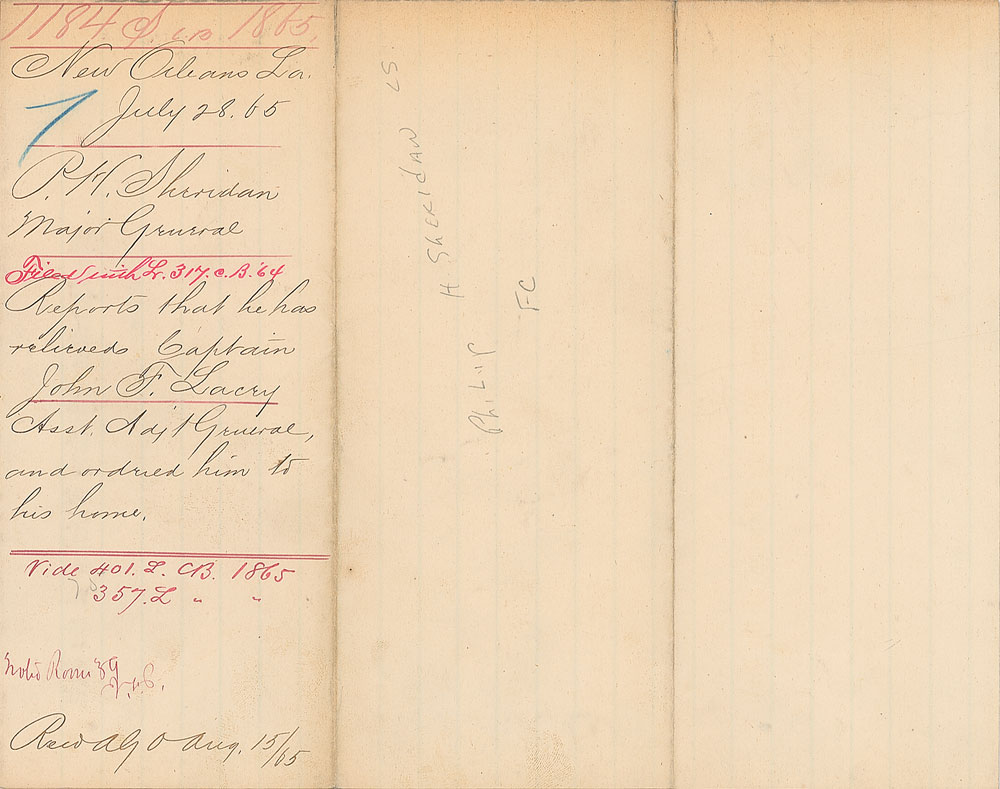 1184 S. CB 1865.
New Orleans La.
July 28. 65
P. H. Sheridan
Major General
Filed with L. 317. C.B. '64
Reports that he has
relieved Captain
John F. Lacey
Asst. Adjt General,
and ordered him to
his home.
Vide 401. L. CB. 1865
357. L " "
Room 39
Recd A G O Aug. 15/65
LS
PHILIP H SHERIDAN
FC